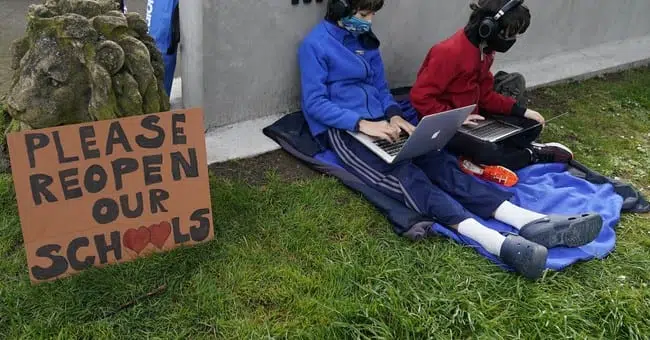 PLEASE
REOPEN
OUR
SCH❤❤LS